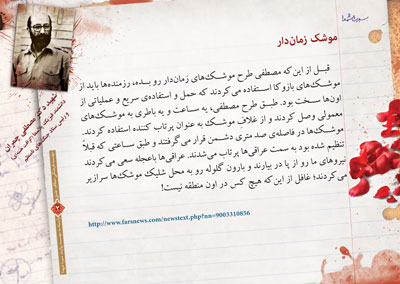 موشک زمان‌دار
قبل از این که مصطفی طرح موشک‌های زمان‌دار رو بده، رزمنده‌ها باید از
موشک‌های بازوکا استفاده می‌کردند که حمل و استفاده‌ی سریع و عملیاتی از
اون‌ها سخت بود. طبق طرح مصطفی، یه ساعت و یه باطری به موشک‌های
معمولی وصل کردند و از غلاف موشک به عنوان پرتاب کننده استفاده کردند.
موشک‌ها در فاصله‌ی صد متری دشمن قرار می‌گرفتند و طبق ساعتی که قبلاً
تنظیم شده بود به سمت عراقی‌ها پرتاب می‌شدند. عراقی‌ها باعجله سعی می‌کردند
نیروهای ما رو از پا در بیارند و بارون گلوله رو به محل شلیک موشک‌ها سرازیر
می‌کردند؛ غافل از این که هیچ کس در اون منطقه نیست!
http://www.farsnews.com/newstext.php?nn=9003310856
شهید دکتر مصطفی چمران
۲